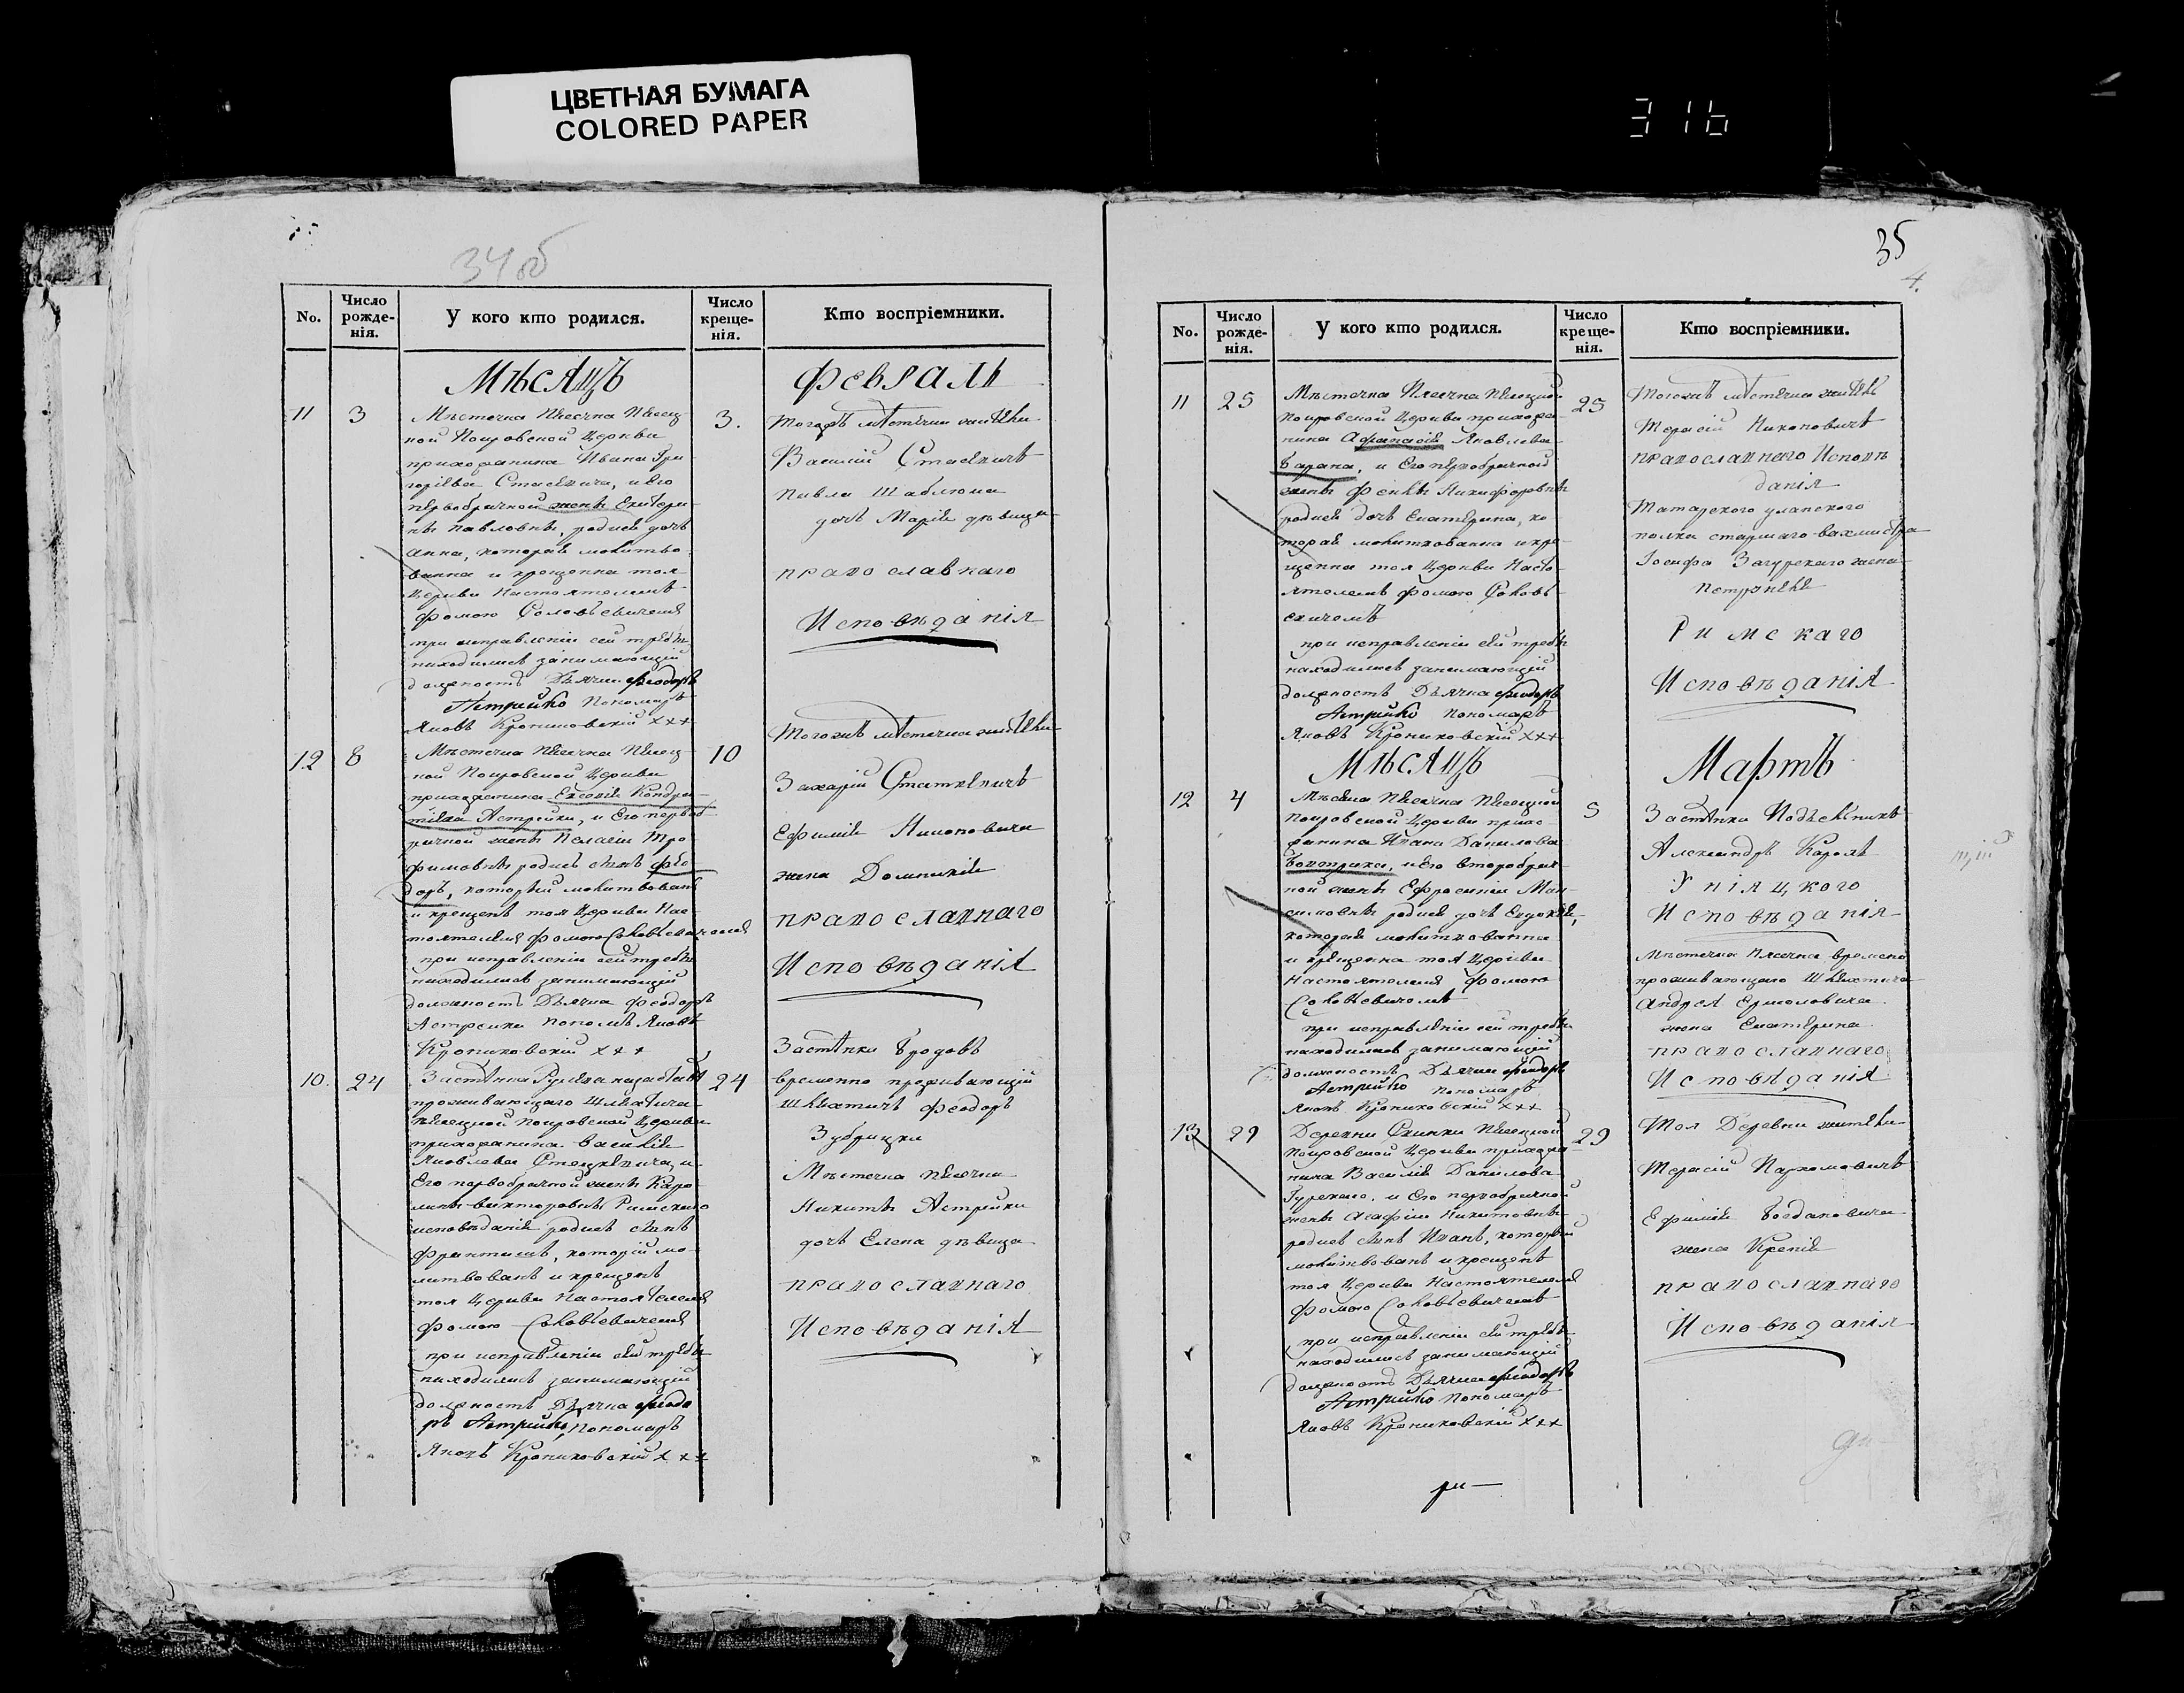 ЦВЕТНАЯ БУМАГА
COLORED PAPER
316
34об
No.
Число рожде-нія.
У кого кто родился.
Число креще-нія.
Кто воспріемники.
Мѣсяцъ
Февраль
11
3
Мѣстечка
ной Покровской Церкви
прихожанина Ивана Гри
горіева и его
первобрачной жены Екатери
ны Павловны, родися дочь
Анна, которая молитво
ванна и крещенна тоя
Церкви Настоятелемъ
Фомою Соловьевичемъ
при исправленіи сей требы
находились занимающій
должность Дьячка Феодоръ
Астрейко Пономаръ
Яковъ ххх
3.
Тогожъ мѣстечка жители
Василій
Павла
дочь Марія дѣвица
православнаго
Исповѣданія
12
8
Мѣстечка
ной Покровской Церкви
прихожанина Евсевія Кондра
тіева Астрейки, и Его первоб
рачной жены Пелагіи Тро
фимовны родись сынъ Фео
доръ, которій молитвованъ
и крещенъ тоя Церкви Нас
тоятелемъ Фомою Соловьевичемъ
при исправленіи сей требы
находились занимающій
должность Дьячка Феодоръ
Астрейки Яковъ
ххх
10
Тогожъ мѣстечка жители
Захарій
Ефимія
жена Домникія
православнаго
Исповѣданія
10.
24
Застѣнка
проживающаго Шляхтича
Покровской Церкви
прихожанина Василія
Яковлева и
Его первобрачной жены Каро
лины Викторовны Римскаго
исповѣданія родись сынъ
которій мо
литвованъ и крещенъ
тоя Церкви Настоятелемъ
Фомою Соловьевичемъ
при исправленіи сей требы
находились занимающій
должность Дьячка Феодо
ръ Астрейко, Пономаръ
Яковъ ххх
24
Застѣнки
временно проживающій
Шляхтичъ Феодоръ
Зубрицки
Мѣстечка
Никиты Астрейки
дочь Елена дѣвица
православнаго
Исповѣданія
35
4.
No.
Число рожде-нія.
У кого кто родился.
Число креще-нія.
Кто воспріемники.
11
25
Мѣстечка
Покровской Церкви прихожа
нина Афанасія Яковлева
Барана, и Его первобрачной
жены Феклы Никифоровны
родися дочь Екатерина, ко
торая молитвованна и кре
щенна тоя Церкви Насто
ятелемъ Фомою Соловь
евичемъ
при исправленіи сей требы
находились занимающій
должность Дьячка Феодоръ
Астрейко Пономаръ
Яковъ ххх
25
Тогожъ мѣстечка житель
Герасій
православнаго Исповѣ
данія
Татарского уланского
полка старшаго вахмистра
Іосифа Загурскаго жена
Римскаго
Исповѣданія
Мѣсяцъ
Мартъ
12
4
Покровской Церкви прихо
жанина Ивана Данилова
и его второбрач
ной жены Ефросиніи Мак
симовны родися дочь Евдокія,
которая молитвованна
и крещенна тоя Церкви
Настоятелемъ Фомою
Соловьевичемъ
при исправленіи сей требы
находились занимающій
должность Дьячка Феодоръ
Астрейко Пономаръ
Яковъ ххх
5
Застѣнка
Александръ Король
Уніяцкого
Исповѣданія
Мѣстечка временно
проживающаго Шляхтича
Андрея Ермоловича
жена Екатерина
православнаго
Исповѣданія
13
29
Деревни
Покровской Церкви прихожа
нина Василія Данилова
и Его первобрачной
жены Агафіи Никитовны
родись сынъ Иванъ, которій
молитвованъ и крещенъ
тоя Церкви Настоятелемъ
Фомою Соловьевичемъ
при исправленіи сей требы
находились занимающій
должность Дьячка Феодоръ
Астрейко Пономаръ
Яковъ ххх
29
Тоя Деревни жители
Герасій Пархомовичъ
Ефимія Богдановича
жена
православнаго
Исповѣданія